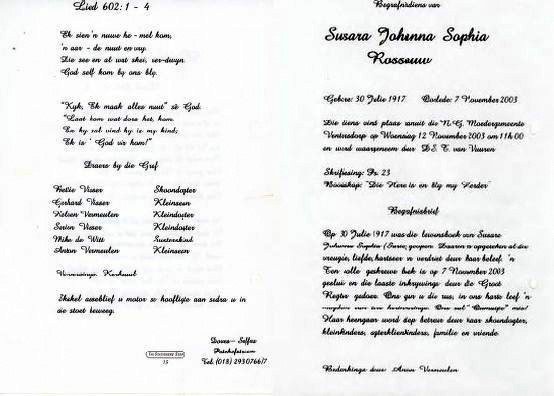 Lied 602:1 - 4
Ek sien 'n nuwe he - mel kom,
'n aar - de nuut en vry.
Die see en al wat skei, ver-dwyn.
God self kom by ons bly.
"Kyk, Ek maak alles nuut" sê God.
"Laat hom wat dors het, kom.
En hy sal vind hy is my kind;
Ek is ' God vir hom!"
Draers by die Graf
Hettie Visser Skoondogter
Gerhard Visser Kleinseun
Heleen Vermeulen Kleindogter
Visser Kleindogter
Mike de Witt
Anton Vermeulen Kleinseun
Skakel asseblief u motor se hoofligte aan sodra u in
die stoet beweeg.
Doves - Saffas
Potchefstroom
Tel. (018) 2930766/7
15
Begrafnisdiens van
Susara Johanna Sophia
Rossouw
Gebore: 30 Julie 1917 Oorlede: 7 November 2003
Die diens vind plaas vanuit die N.G. Moedergemeente
Ventersdorp op Woensdag 12 November 2003 om 11h00
en word waargeneem deur DS. van Vuuren
Skriflesing: Ps. 23
Boodskap: "Die Here is en bly my Herder"
Begrafnisbrief
Op 30 Julie 1917 was die lewensboek van Susara
Johanna Sophia geopen. Daarin is opgeteken al die
vreugde, liefde, hartseer en verdriet deur haar beleef. 'n
Ten volle geskrewe boek is op 7 November 2003
gesluit en die laaste inskrywings deur die Groot
Regter gedoen. Ons gun u die rus, in ons harte leef 'n
Haar heengaan word diep betreur deur haar skoondogter,
kleinkinders, agterkleinkinders, familie en vriende.
Bedankings deur: Anton Vermeulen